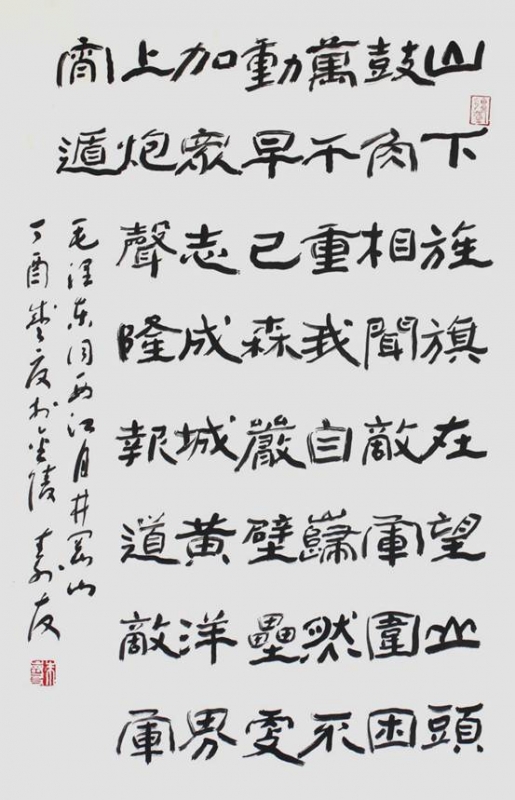 山下旌旗在望山頭
鼓角相聞敵軍圍困
萬千重我自巋然不
動早已森嚴壁壘更
加眾志成城黃洋界
上炮聲隆報道敵軍
宵遁
毛澤東词西江月井岡山
丁酉盛夏於金陵 壽友